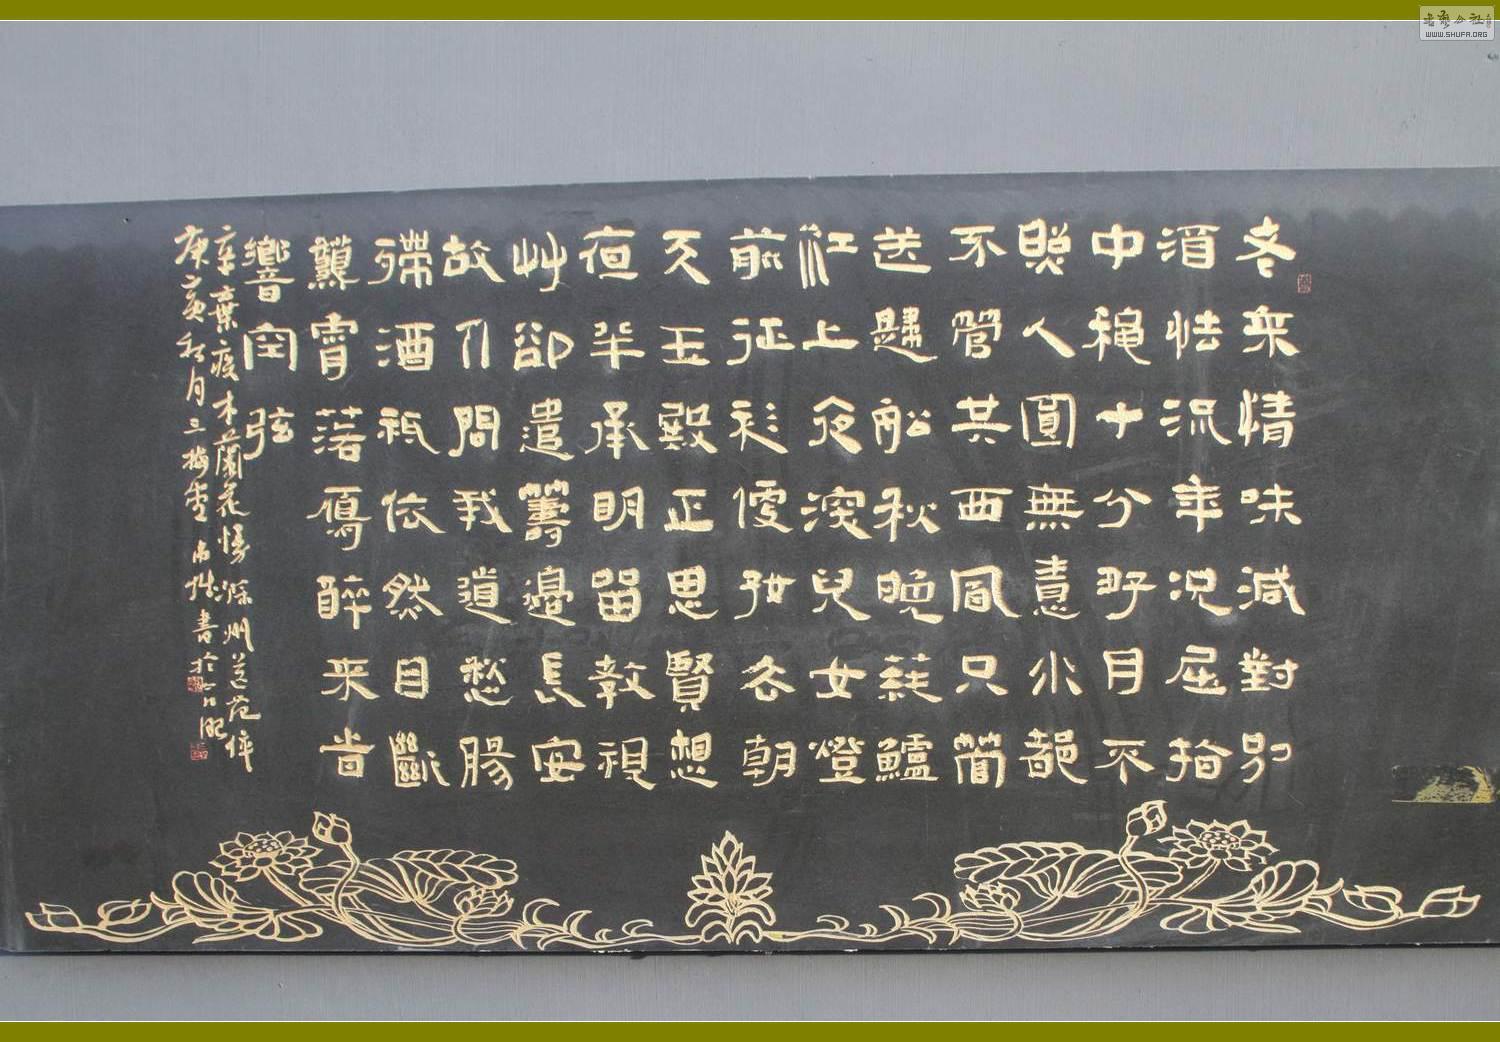 老來情味減對別
酒怯流年況屈指
中秋十分好月不
照人圓無情水都
不管共西風只管
送歸船秋晚蓴鱸
江上夜深兒女燈
前征衫便好去朝
天玉殿正思賢想
夜半承明留教視
艸卻遣籌邊長安
故人問我道愁腸
殢酒祇依然目斷
秋霄落雁醉來時
響空弦
辛棄疾木蘭花慢滁州送范倅
庚寅秋月三梅堂 書於合肥
書藝公社
WWW.SHUFA.ORG